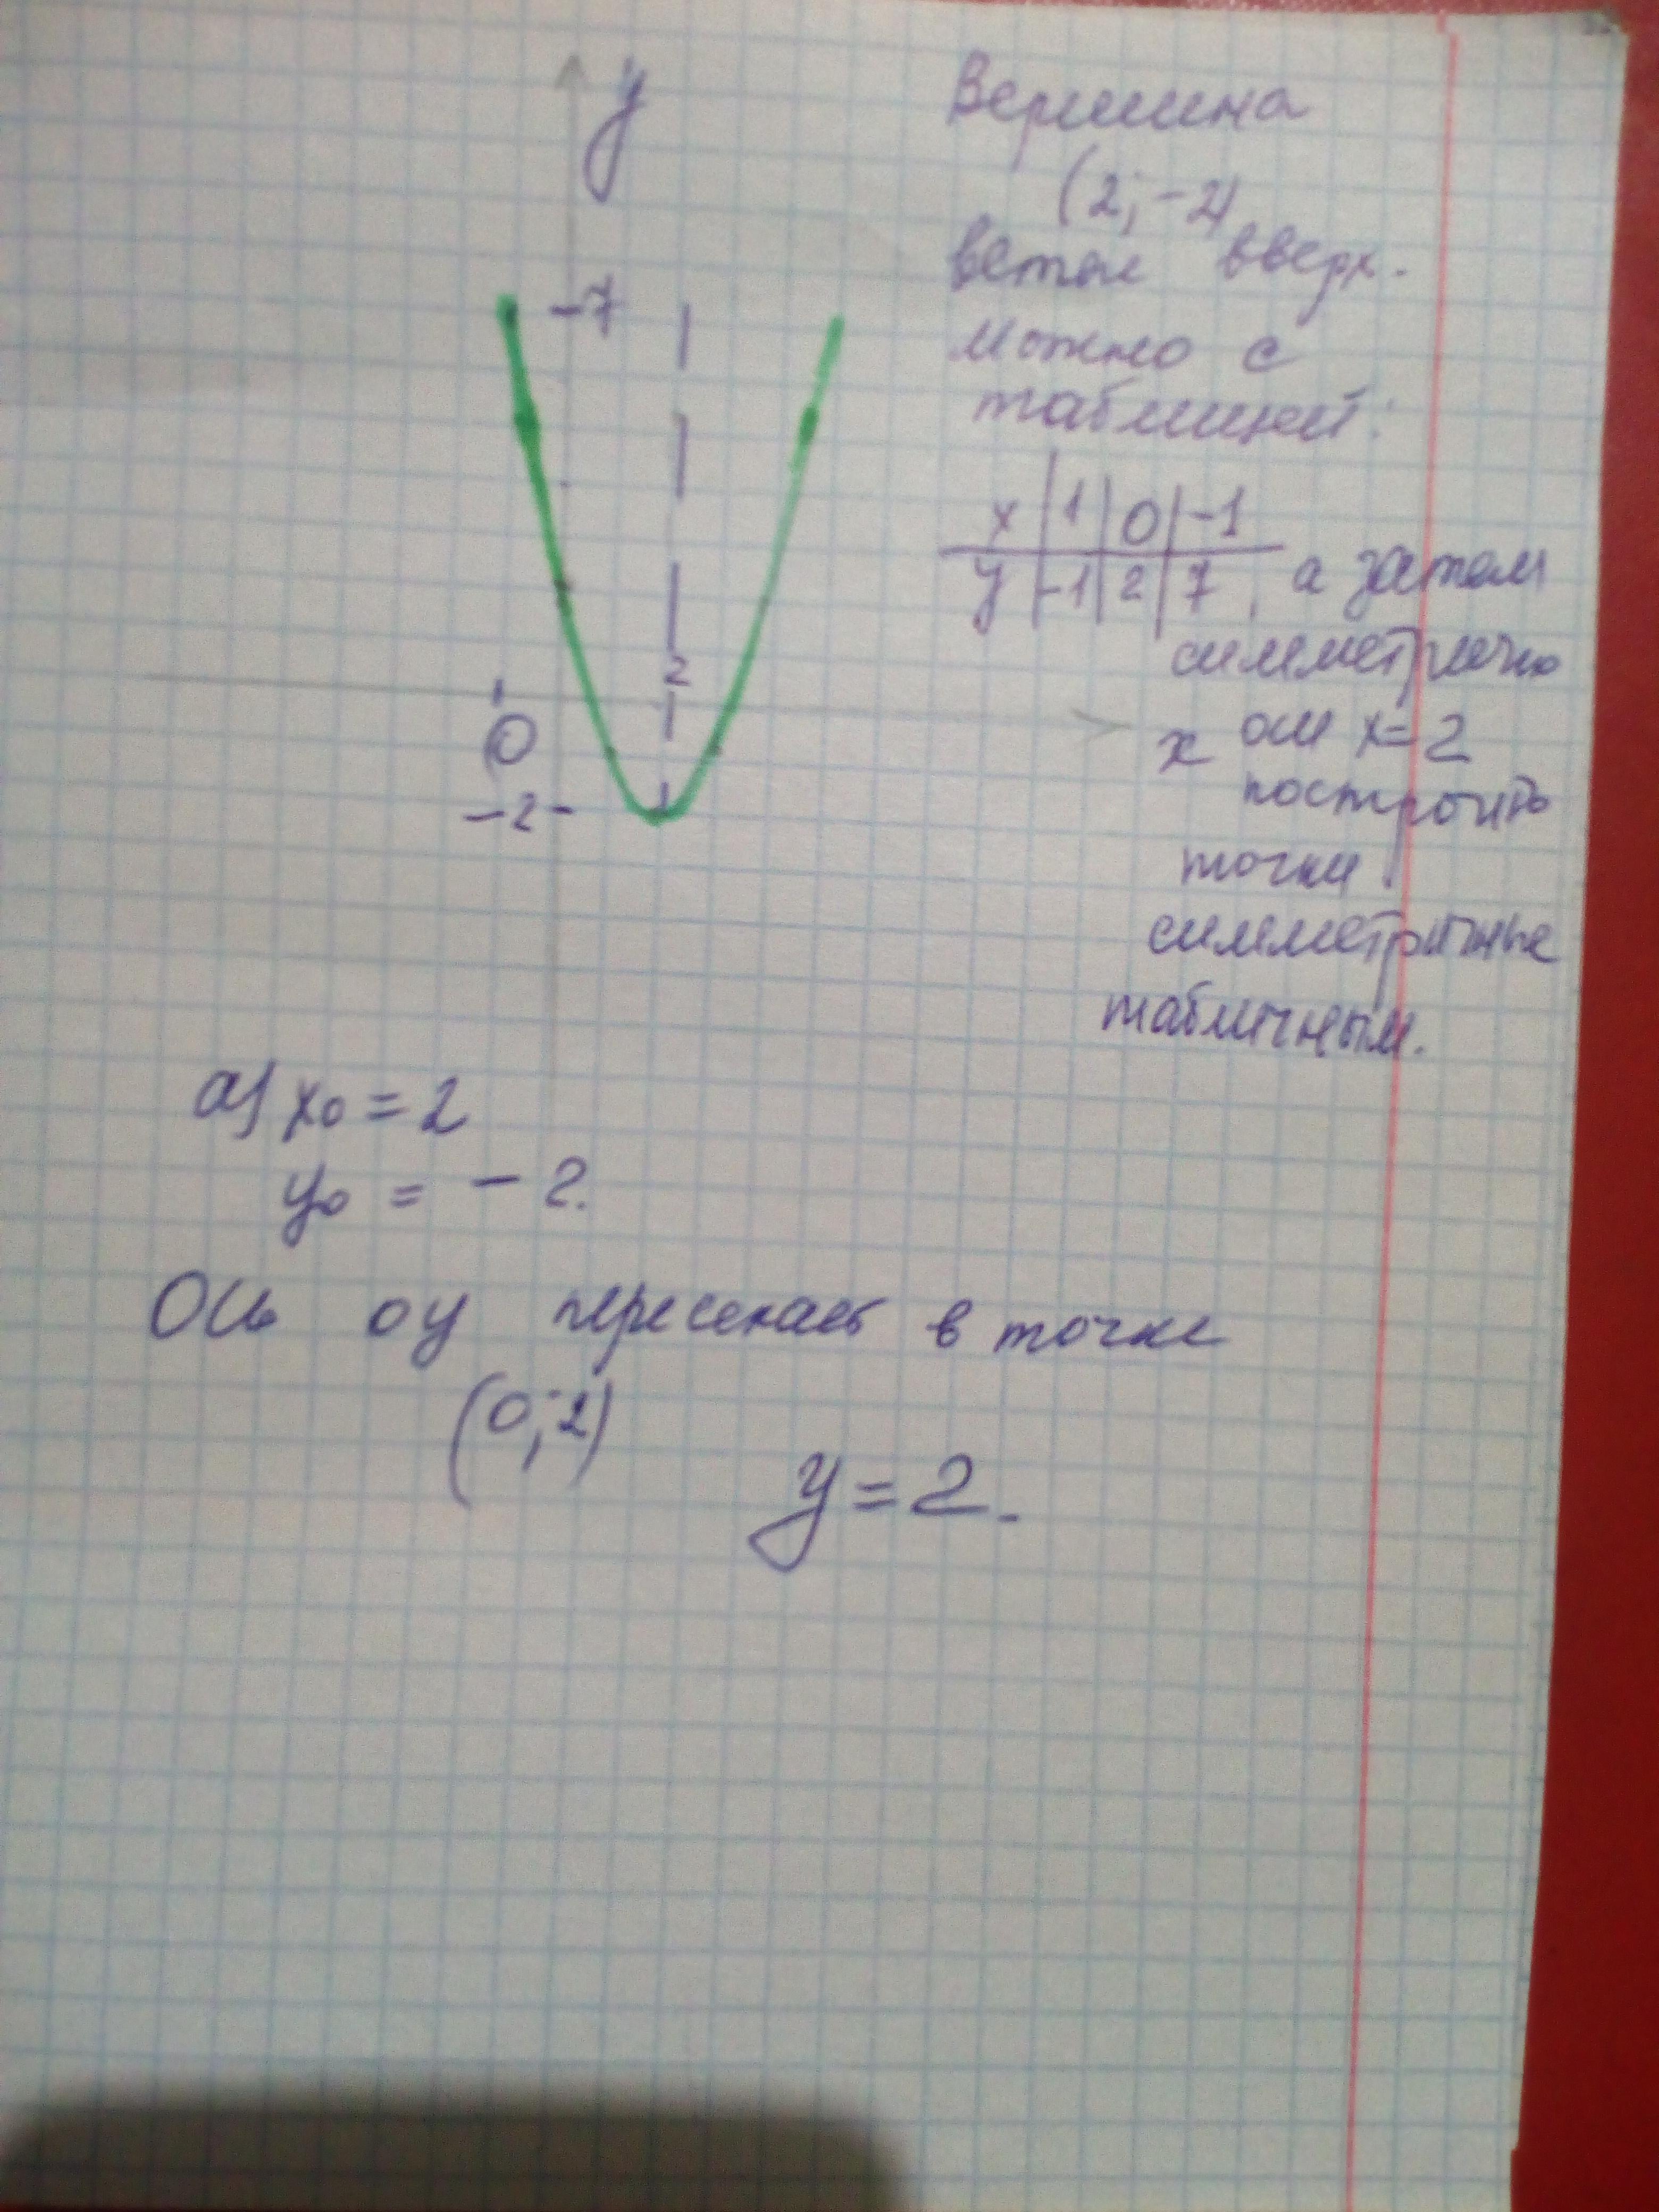 y
Вершина
(2; -2)
ветви вверх.
-7
Можно с
таблицей:
x | 1 | 0 | -1
y | -1 | 2 | 7 , а затем
симметрично
2
оси x=2
0
x
построить
-2-
точки
симметричные
табличным.
а) x₀ = 2
y₀ = - 2.
Ось оу пересекает в точке
(0; 2)
y = 2.